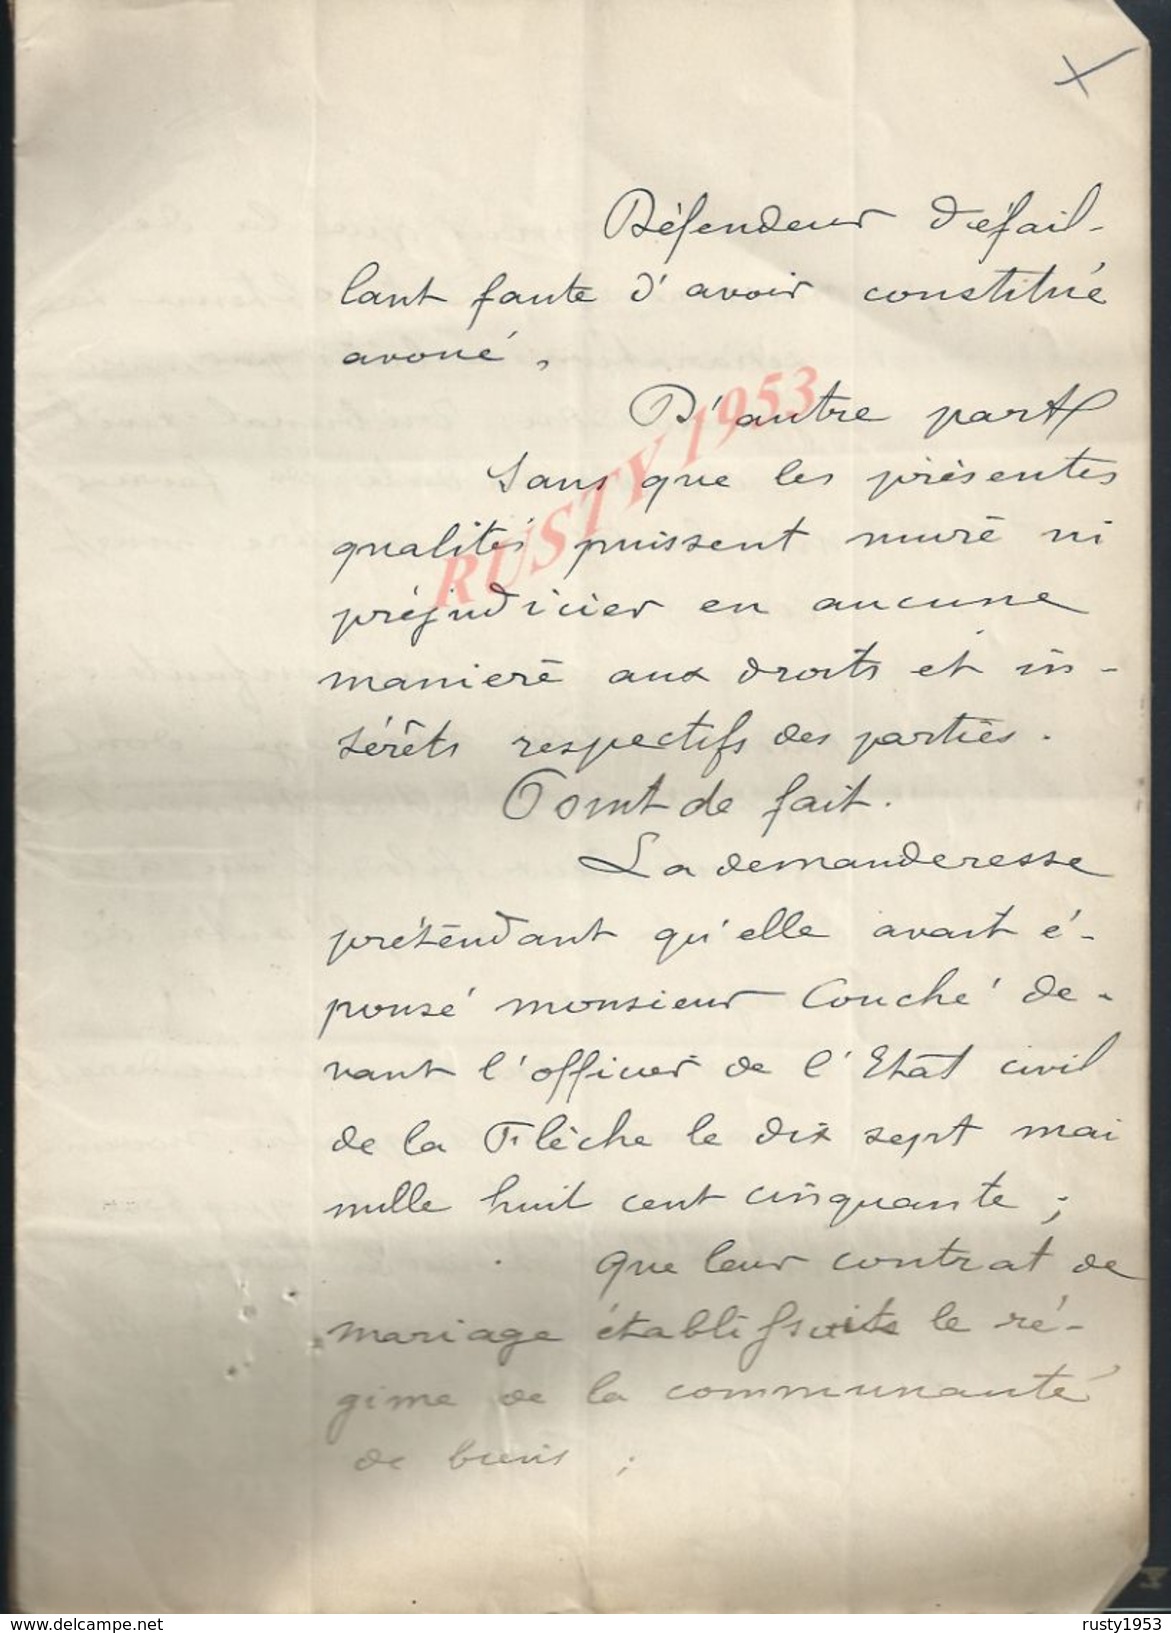 Défendeur défail-
lant faute d'avoir constitué
avoué,
D'autre part
Sans que les présentes
qualités puissent nuire ni
préjudicier en aucune
manière aux droits et in-
térêts respectifs des parties.
Point de fait.
La demanderesse
prétendant qu'elle avait é-
pousé monsieur Couché de-
vant l'officier de l'Etat civil
de la Flèche le dix sept mai
mille huit cent cinquante ;
que leur contrat de
mariage établissait le ré-
gime de la communauté
de biens ;
RUSTY 1953
www.delcampe.net
rusty1953